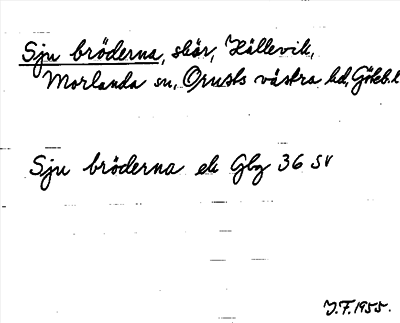 Sju bröderna, skär, Hällevik,
Morlanda sn, Orusts västra hd, Göteb. l
Sju bröderna ek Gbg 36 SV
J.F. 1955.